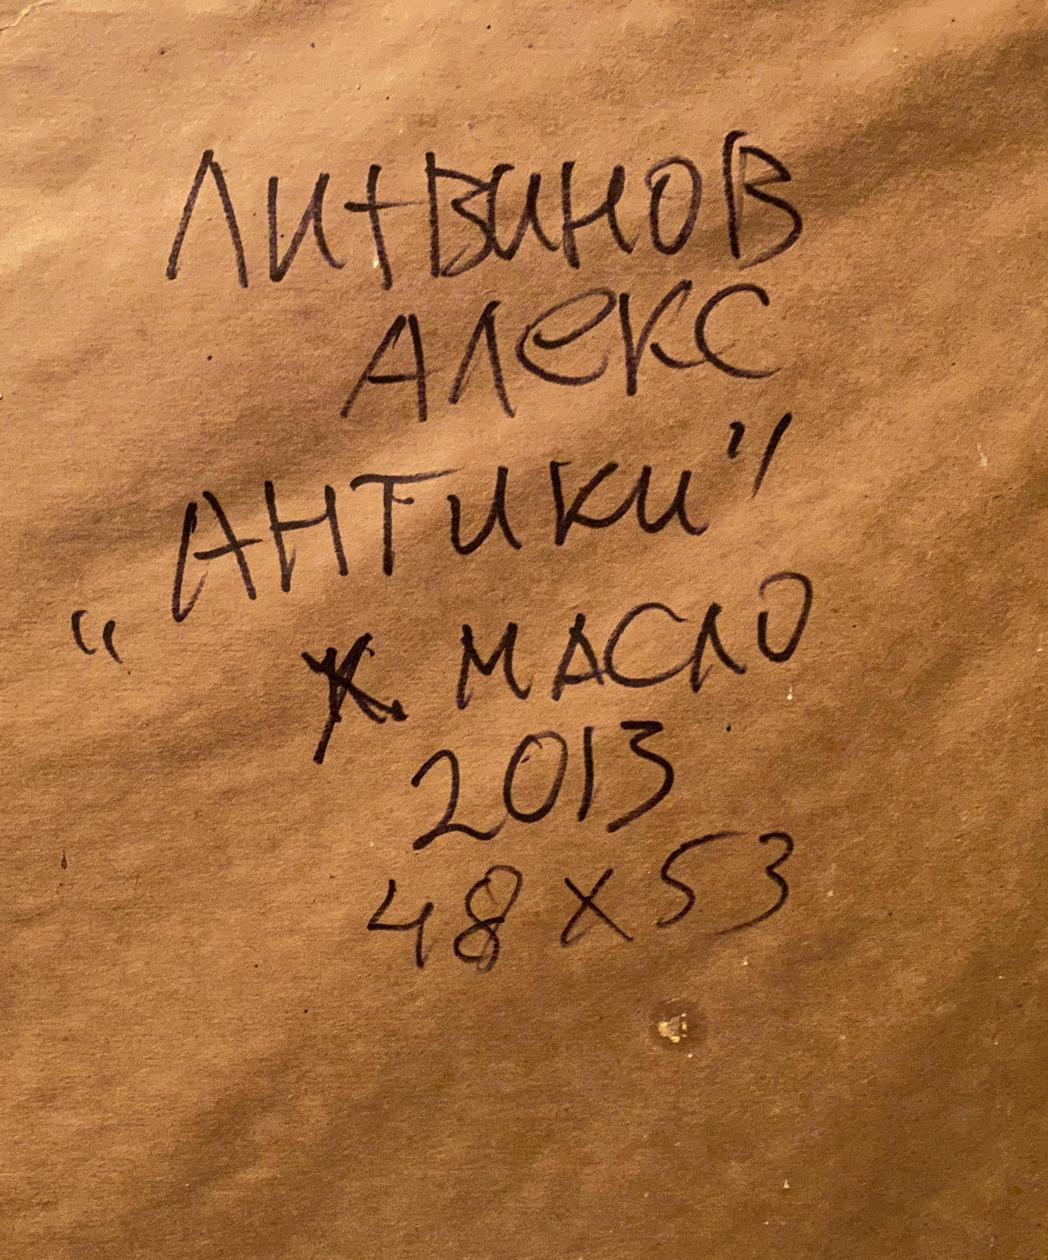 ЛИТВИНОВ
АЛЕКС
"АНТИКИ"
Х. МАСЛО
2013
48 x 53